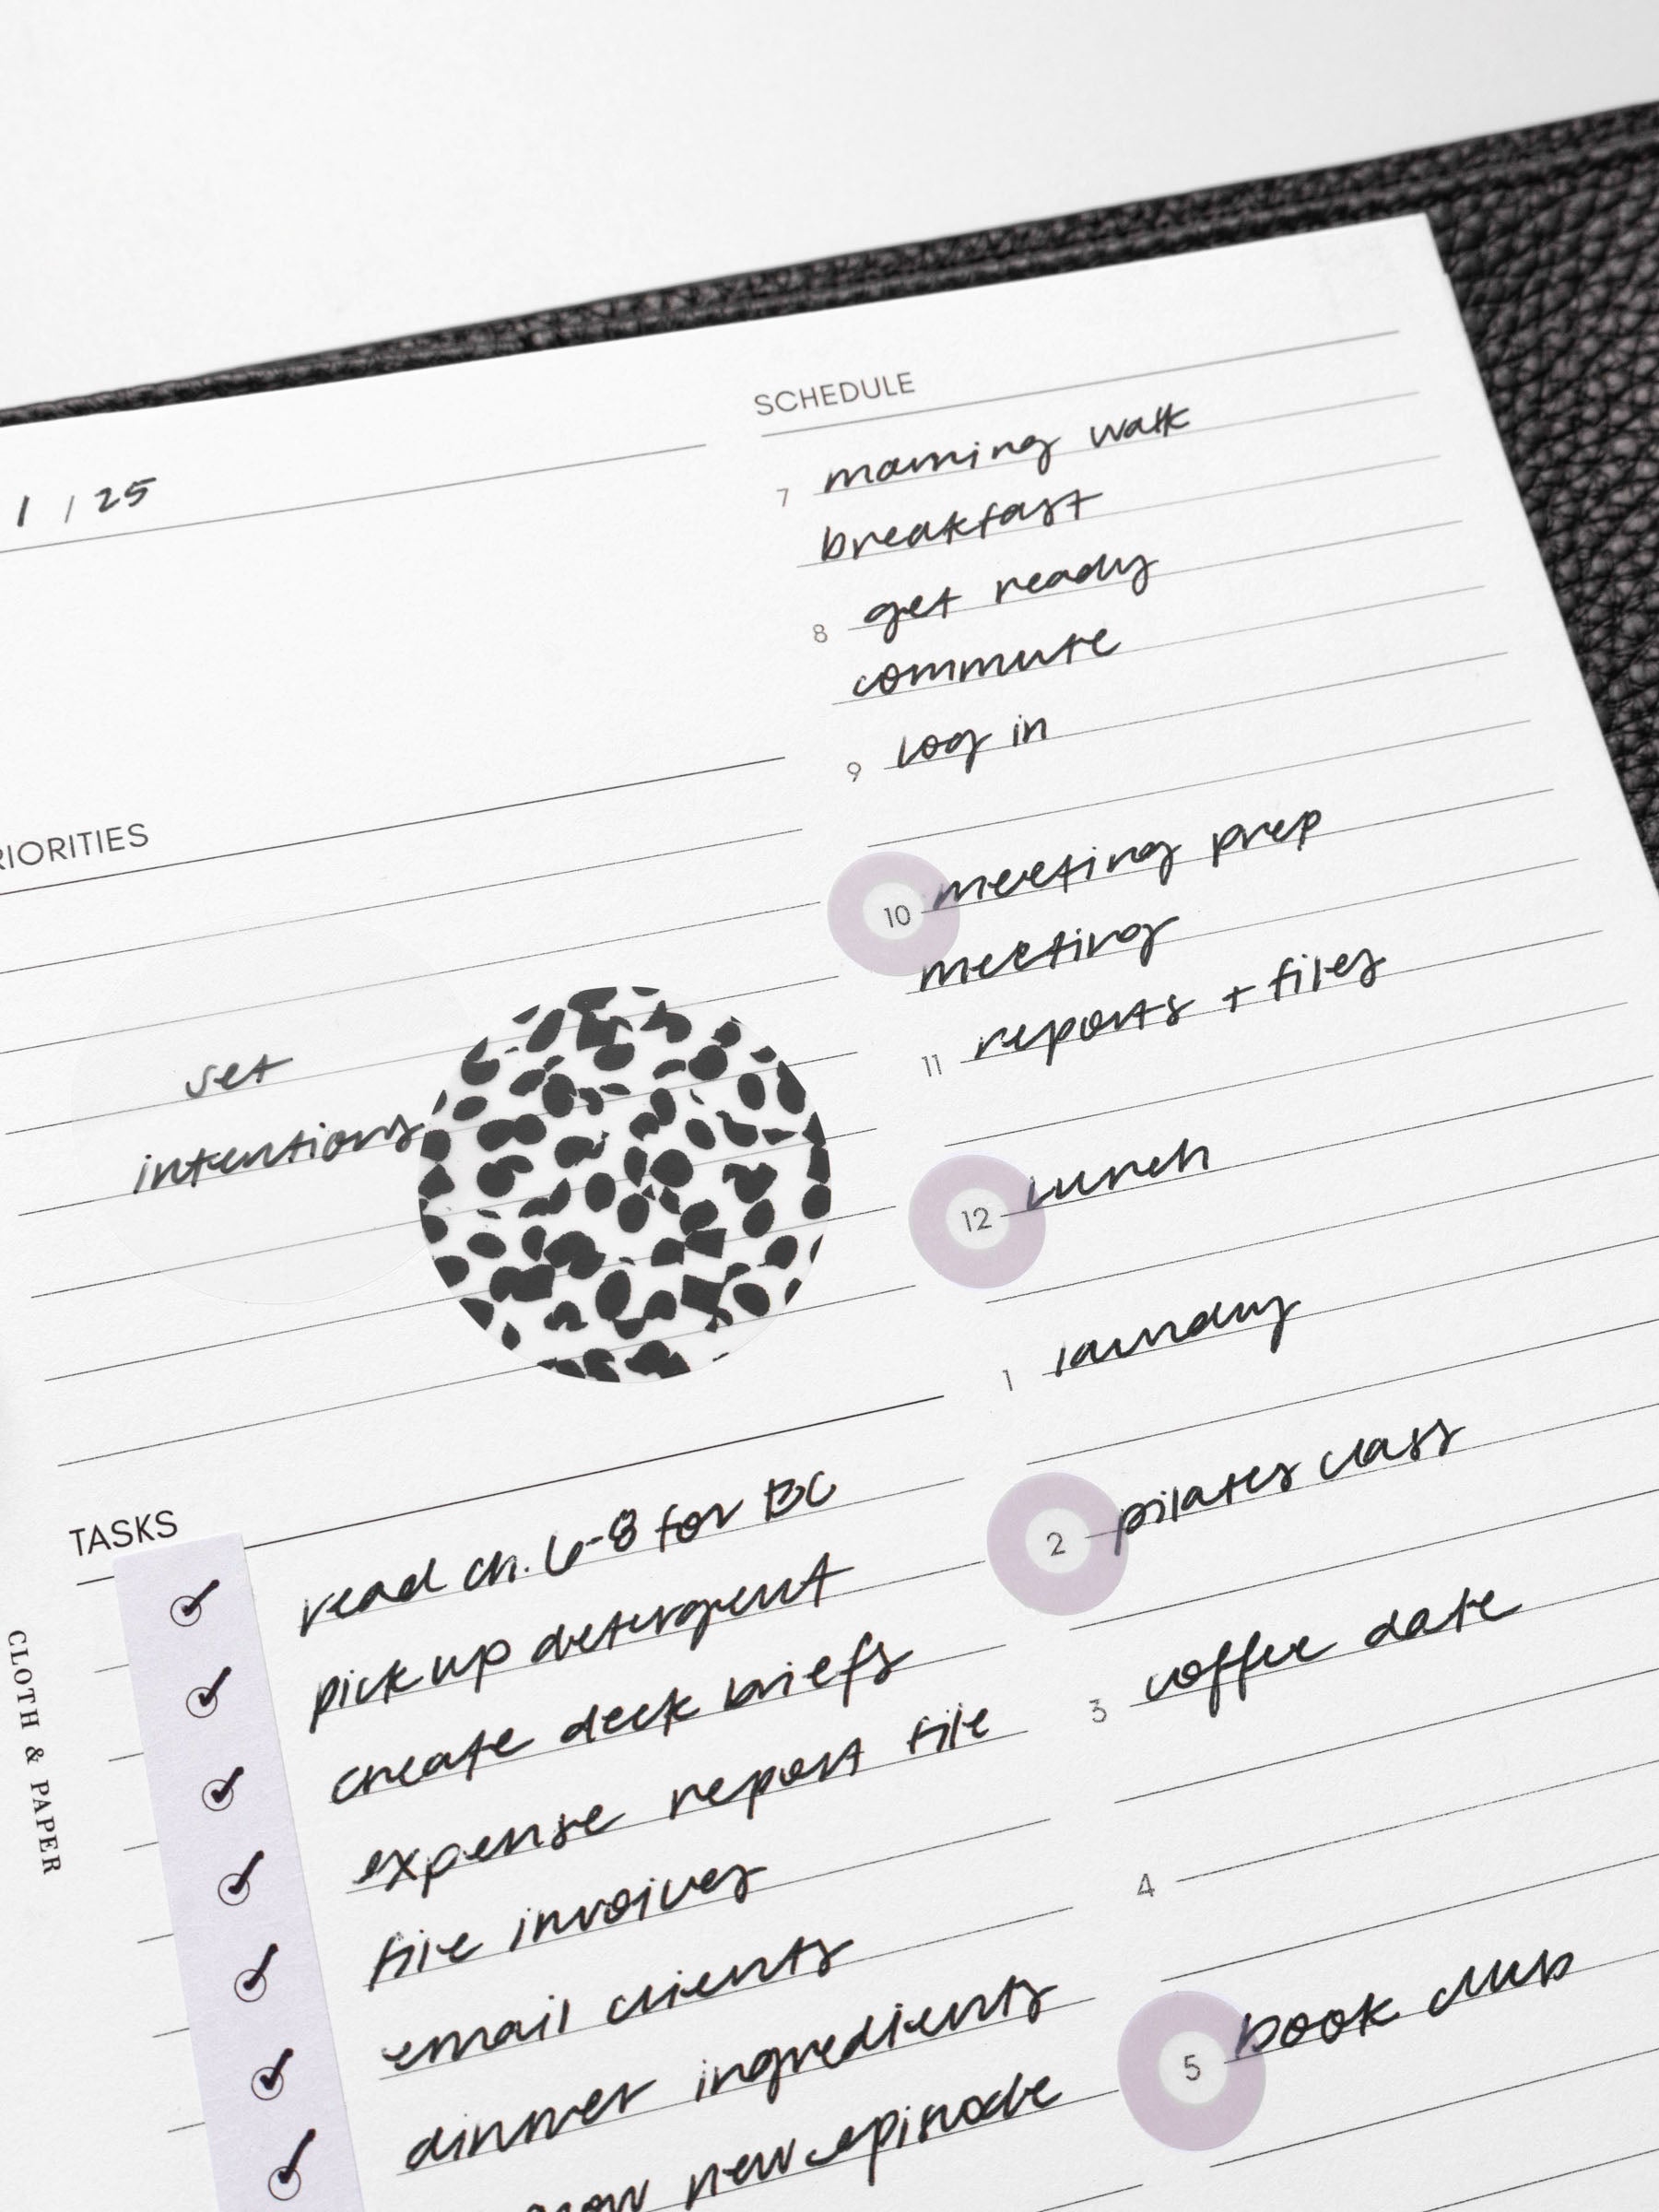 1 / 25
RIORITIES
set
intentions
TASKS
read ch. 6-8 for BC
pick up detergent
create deck briefs
expense report file
file invoices
email clients
dinner ingredients
new episode
CLOTH & PAPER
SCHEDULE
7 morning walk
breakfast
8 get ready
commute
9 log in
10 meeting prep
meeting
11 reports + files
12 lunch
1 laundry
2 pilates class
3 coffee date
4
5 book club